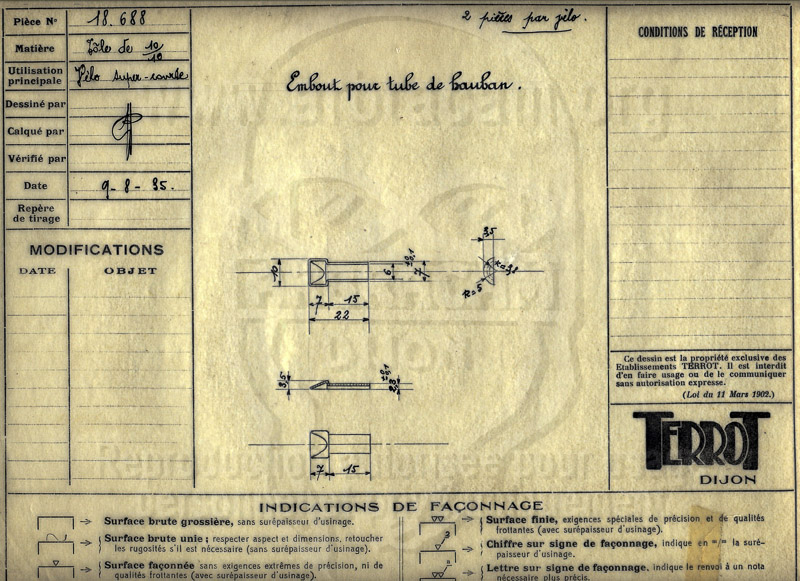 Pièce N° 18.688
Matière Tôle de 10/10
Utilisation principale Vélo super-course
Dessiné par
Calqué par
Vérifié par
Date 9-8-35.
Repère de tirage
MODIFICATIONS
DATE OBJET
2 pièces par vélo.
Embout pour tube de hauban.
CONDITIONS DE RÉCEPTION
3,5
10
6
±0,1
7
R=5
7 15
22
3,5
±0,1
2,8
7 15
Ce dessin est la propriété exclusive des
Etablissements TERROT. Il est interdit
d'en faire usage ou de le communiquer
sans autorisation expresse.
(Loi du 11 Mars 1902.)
TERROT
DIJON
INDICATIONS DE FAÇONNAGE
Surface brute grossière, sans surépaisseur d'usinage.
Surface brute unie; respecter aspect et dimensions, retoucher
les rugosités s'il est nécessaire (sans surépaisseur d'usinage).
Surface façonnée sans exigences extrêmes de précision, ni de
qualités frottantes (avec surépaisseur d'usinage).
Surface finie, exigences spéciales de précision et de qualités
frottantes (avec surépaisseur d'usinage).
Chiffre sur signe de façonnage, indique en m/m la suré-
paisseur d'usinage.
Lettre sur signe de façonnage, indique le renvoi à un nota
nécessaire plus précis.